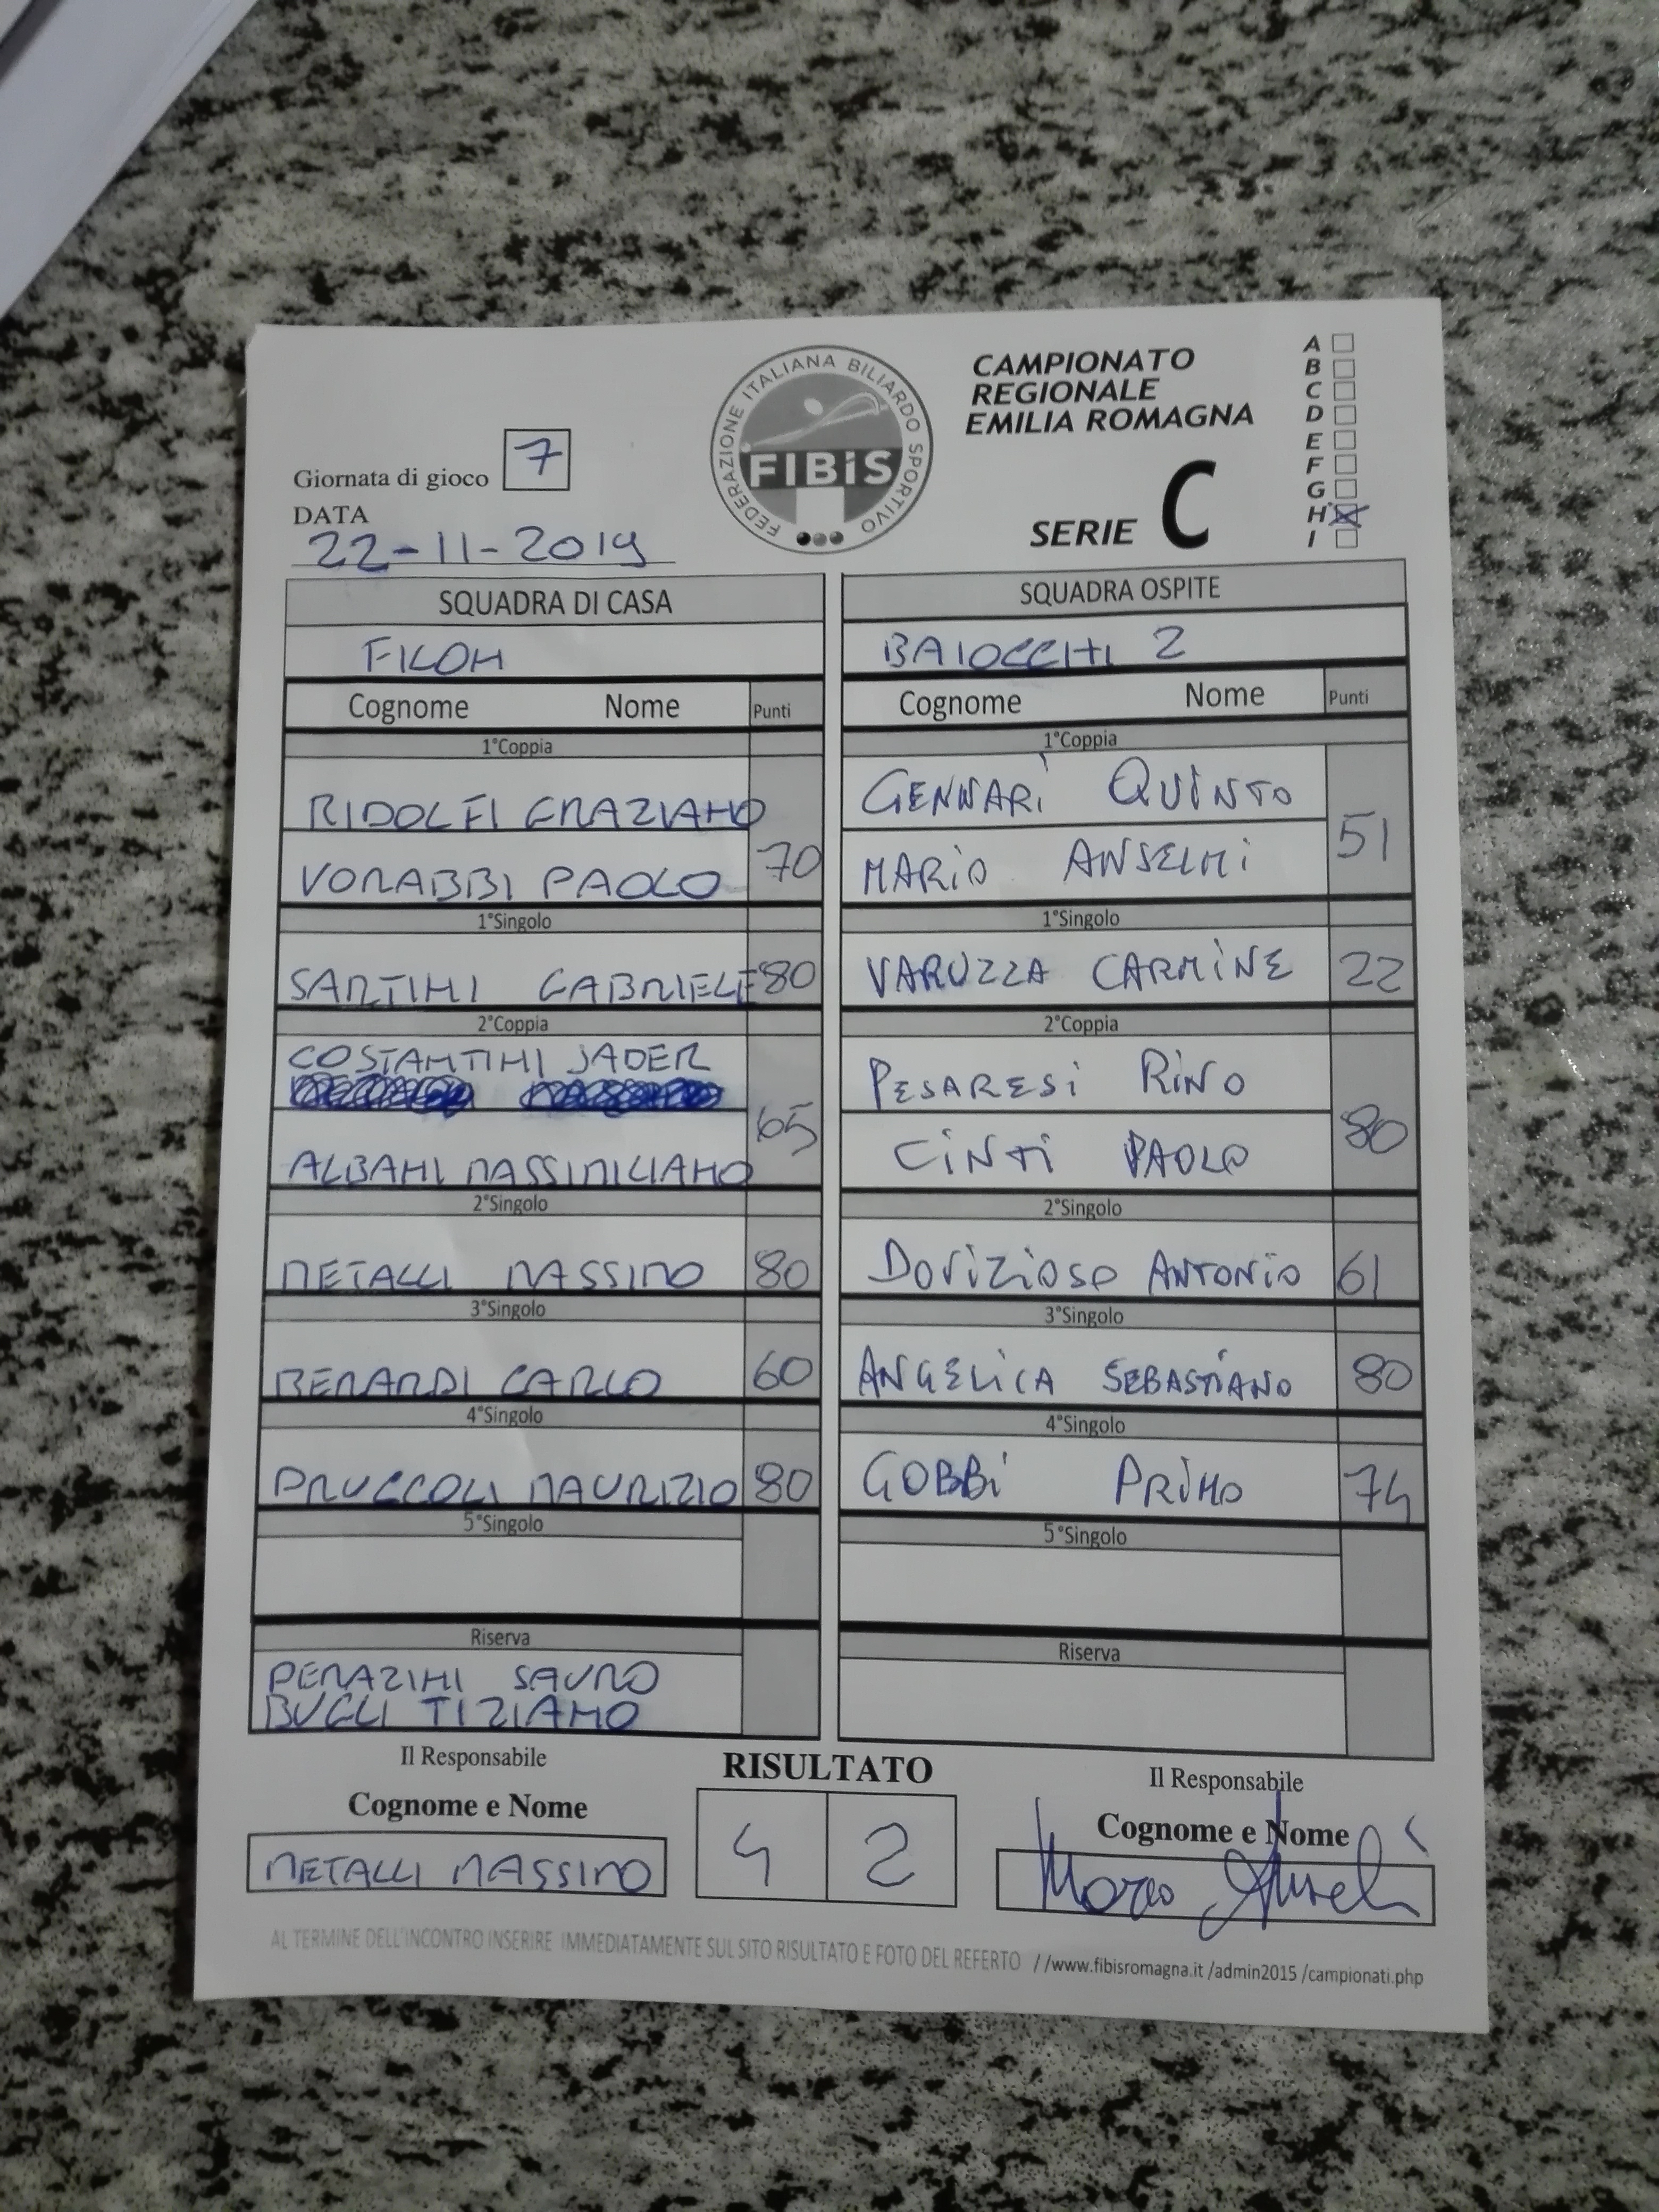 FEDERAZIONE ITALIANA BILIARDO SPORTIVO
FIBiS
CAMPIONATO
REGIONALE
EMILIA ROMAGNA
SERIE C
A
B
C
D
E
F
G
H
I
Giornata di gioco 7
DATA
22-11-2019
SQUADRA DI CASA
FILOH
Cognome Nome Punti
1°Coppia
RIDOLFI GRAZIANO
VORABBI PAOLO 70
1°Singolo
SARTINI GABRIELE 80
2°Coppia
COSTANTINI JADER
65
ALBANI MASSIMILIANO
2°Singolo
METALLI MASSIMO 80
3°Singolo
BERARDI CARLO 60
4°Singolo
PRUCCOLI MAURIZIO 80
5°Singolo
Riserva
PERAZINI SAURO
BUGLI TIZIANO
SQUADRA OSPITE
BAIOCCHI 2
Cognome Nome Punti
1°Coppia
GENNARI QUINTO
51
MARIO ANSELMI
1°Singolo
VARUZZA CARMINE 22
2°Coppia
PESARESI RINO
80
CINTI PAOLO
2°Singolo
DOVIZIOSO ANTONIO 61
3°Singolo
ANGELICA SEBASTIANO 80
4°Singolo
GOBBI PRIMO 74
5°Singolo
Riserva
Il Responsabile
Cognome e Nome
METALLI MASSIMO
RISULTATO
4 2
Il Responsabile
Cognome e Nome
AL TERMINE DELL'INCONTRO INSERIRE IMMEDIATAMENTE SUL SITO RISULTATO E FOTO DEL REFERTO //www.fibisromagna.it /admin2015 /campionati.php